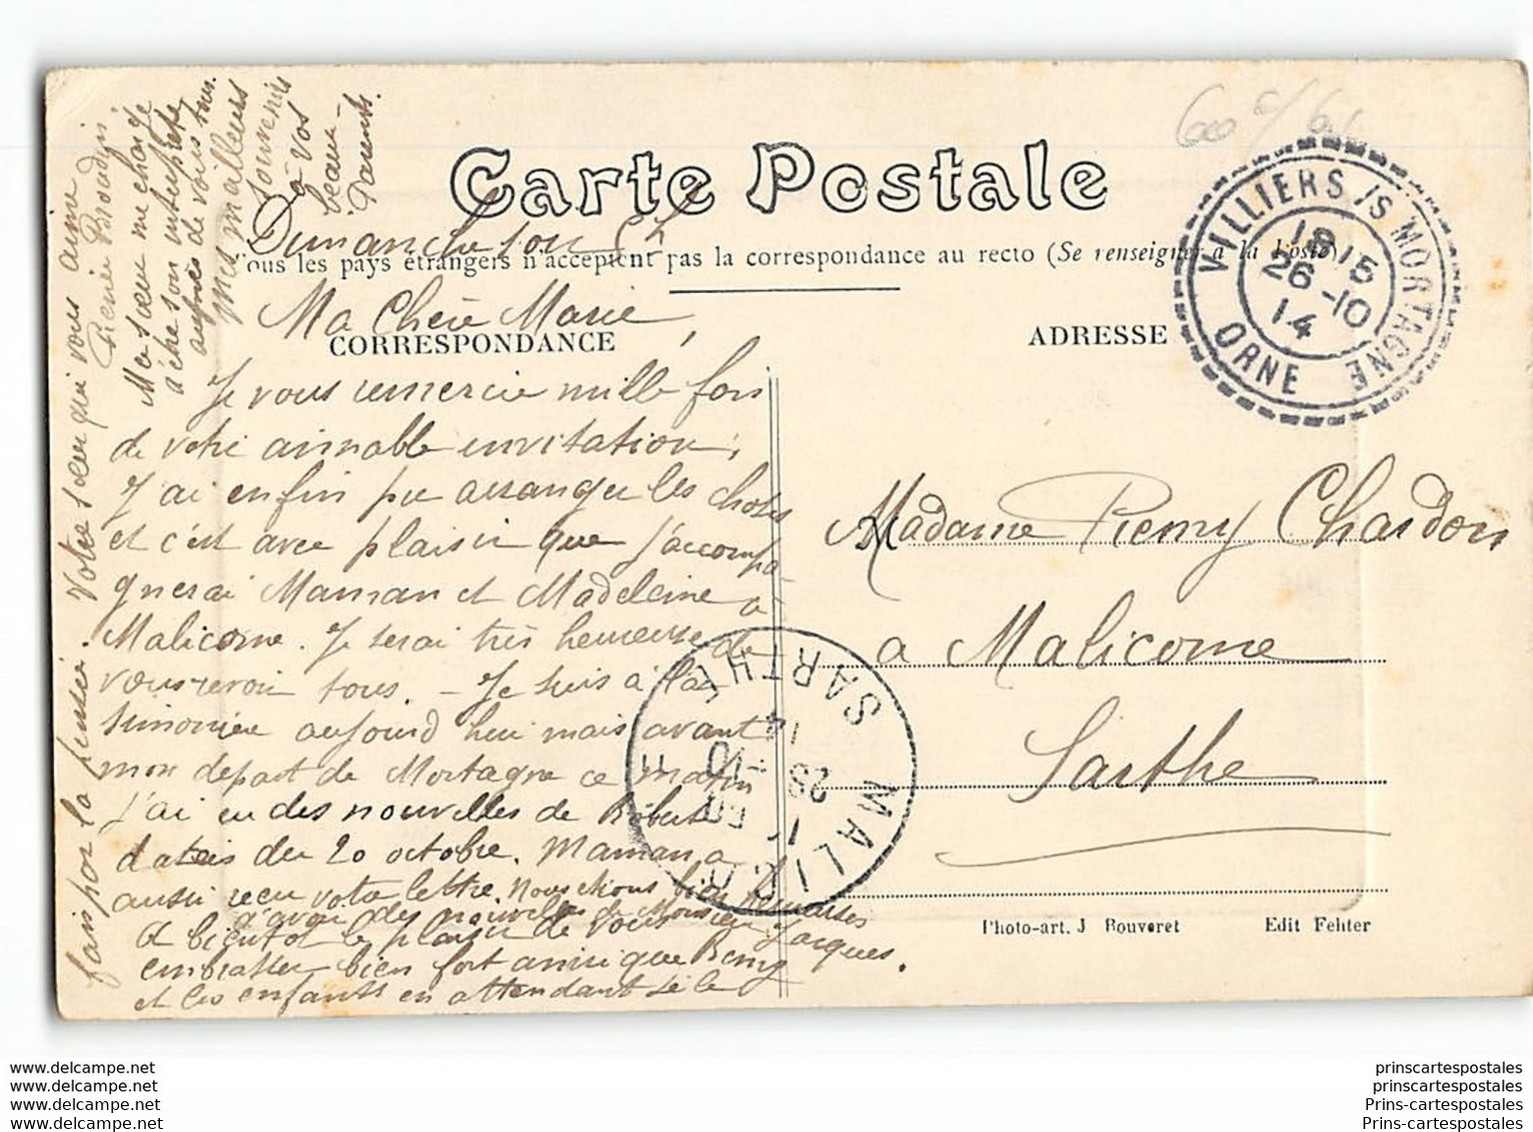 Carte Postale
Tous les pays étrangers n'acceptent pas la correspondance au recto (Se renseigner à la Poste)
CORRESPONDANCE
ADRESSE
VILLIERS /S MORTAGNE
ORNE
18 15
26 -10
14
Dimanche soir
Ma Chère Marie,
Je vous remercie mille fois
de votre aimable invitation,
J'ai enfin pu arranger les choses
et c'est avec plaisir que j'accompa-
gnerai Maman et Madeleine à
Malicorne. Je serai très heureuse de
vous revoir tous. - Je suis à la
Simonière aujourd'hui mais avant
mon départ de Mortagne ce matin
j'ai eu des nouvelles de Robert
datées du 20 octobre. Maman a
aussi reçu votre lettre. Nous étions bien heureuses
d'avoir des nouvelles de Monsieur Jacques.
A bientôt le plaisir de vous
embrasser bien fort ainsi que Remy
et les enfants en attendant je le
fais par la pensée. Votre sœur qui vous aime
Ma sœur me charge
d'être son interprète
auprès de vous tous.
Mes meilleurs
souvenirs
à vos
beaux-
Parents.
Madame Remy Chardon
à Malicorne
Sarthe
MALICORNE
SARTHE
28 -10
14
Photo-art. J Bouveret
Edit Fehter
www.delcampe.net
www.delcampe.net
www.delcampe.net
www.delcampe.net
prinscartespostales
prinscartespostales
Prins-cartespostales
Prins-cartespostales